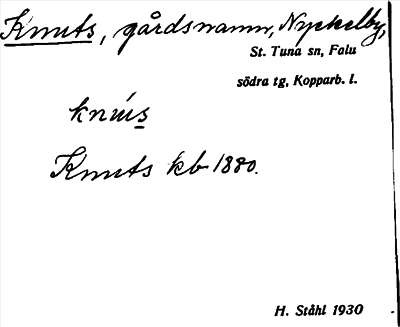 Knuts, gårdsnamn, Nyckelby,
St. Tuna sn, Falu
södra tg, Kopparb. l.
knús
Knuts kb 1880.
H. Ståhl 1930